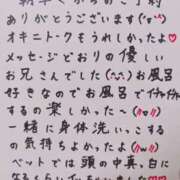 ありがとうございます(*ˊᵕˋ*)
オキニトークもうれしかったよ♥
メッセージどおりの優しい
お兄さんでした(^-^)お風呂
好きなのでお風呂でイチャ
するの楽しかった〜(〃ω〃)
一緒に身体洗いっこする
の気持ちよかったね(〃ω〃)
ベットでは頭の中真っ白に